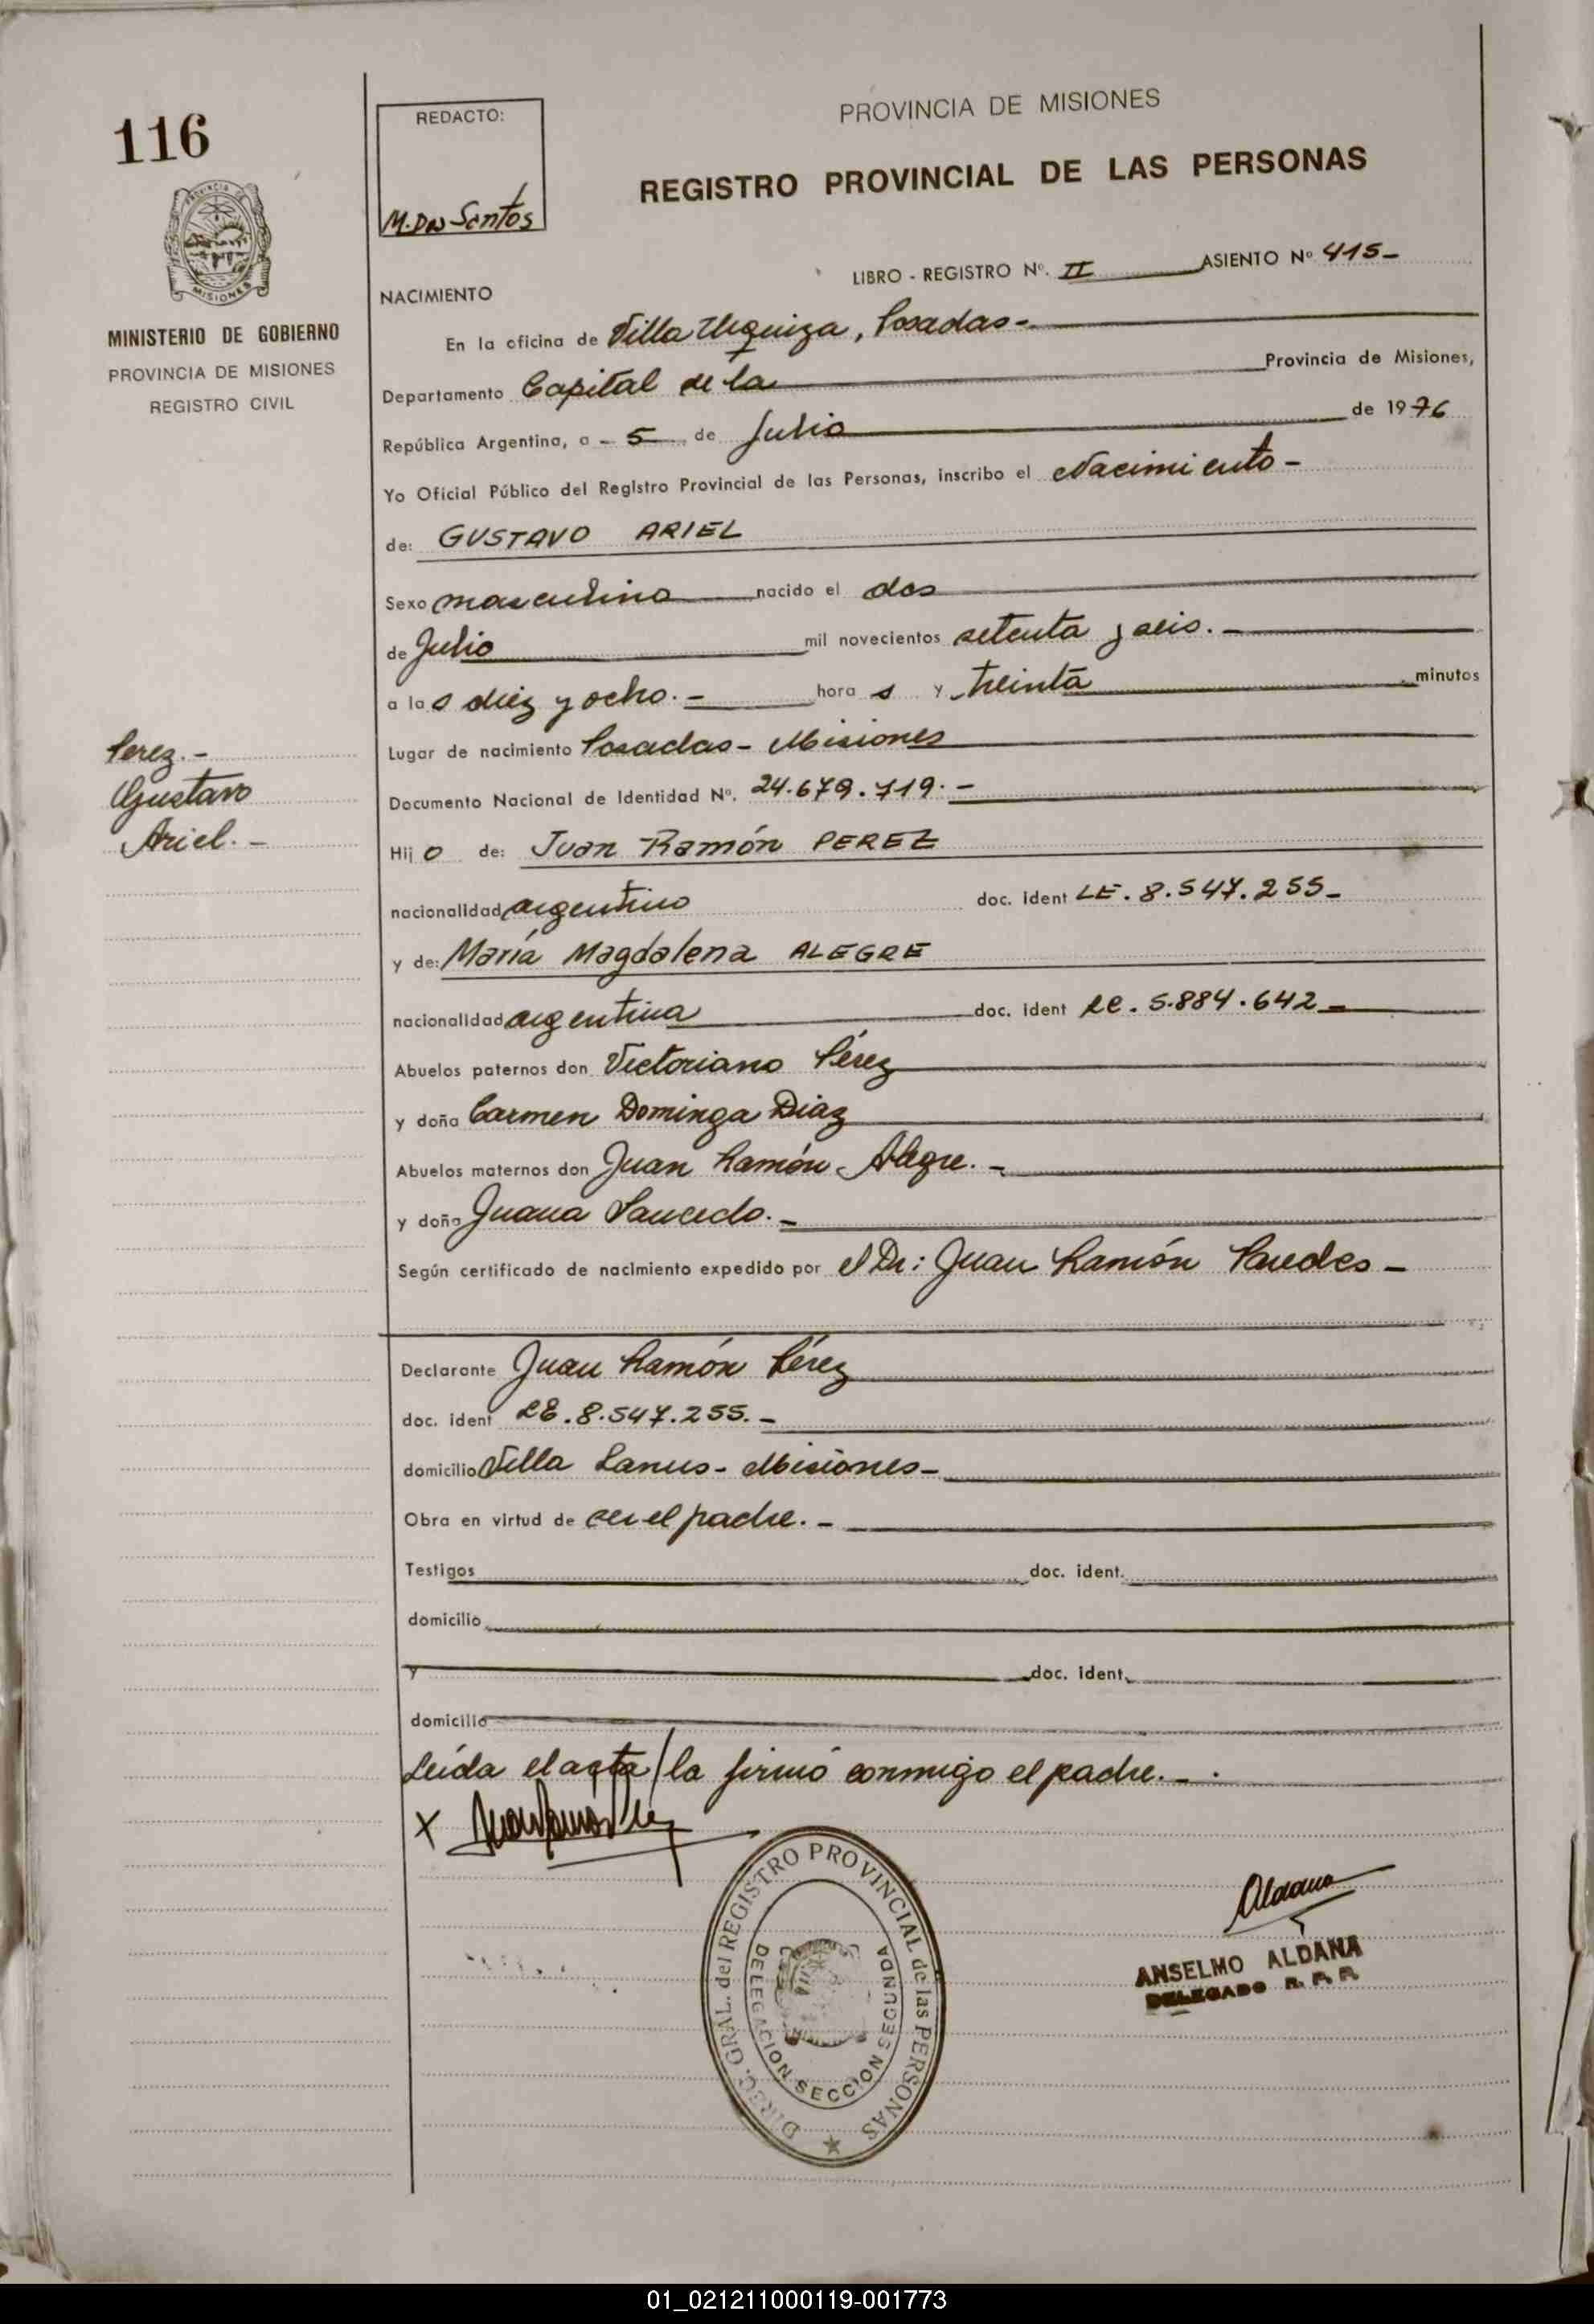 116
REDACTO:
M. Dos Santos
PROVINCIA DE MISIONES
REGISTRO PROVINCIAL DE LAS PERSONAS
PROVINCIA DE
MISIONES
MINISTERIO DE GOBIERNO
PROVINCIA DE MISIONES
REGISTRO CIVIL
LIBRO - REGISTRO Nº. II ASIENTO Nº 415-
NACIMIENTO
En la oficina de Villa Urquiza, Posadas-
Departamento Capital de la Provincia de Misiones,
República Argentina, a - 5 - de Julio de 1976
Yo Oficial Público del Registro Provincial de las Personas, inscribo el Nacimiento-
de: GUSTAVO ARIEL
Sexo masculino nacido el dos
de Julio mil novecientos setenta y seis.-
a las diez y ocho.- horas y treinta minutos
Lugar de nacimiento Posadas- Misiones
Perez.-
Gustavo
Ariel.-
Documento Nacional de Identidad Nº. 24.679.719.-
Hijo de: Juan Ramón PEREZ
nacionalidad argentino doc. ident LE. 8.547.255-
y de: María Magdalena ALEGRE
nacionalidad argentina doc. ident LC. 5.884.642-
Abuelos paternos don Victoriano Pérez
y doña Carmen Dominga Diaz
Abuelos maternos don Juan Ramón Alegre.-
y doña Juana Saucedo.-
Según certificado de nacimiento expedido por el Dr: Juan Ramón Paredes-
Declarante Juan Ramón Pérez
doc. ident LE. 8.547.255.-
domicilio Villa Lanus- Misiones-
Obra en virtud de ser el padre.-
Testigos doc. ident.
domicilio
y doc. ident.
domicilio
Leída el acta / la firmó conmigo el padre.-.
X Juan Ramón Pérez
DIREC. GRAL. del REGISTRO PROVINCIAL de las PERSONAS
DELEGACION SECCION SEGUNDA
Aldana
ANSELMO ALDANA
DELEGADO R. P. P.
01_021211000119-001773